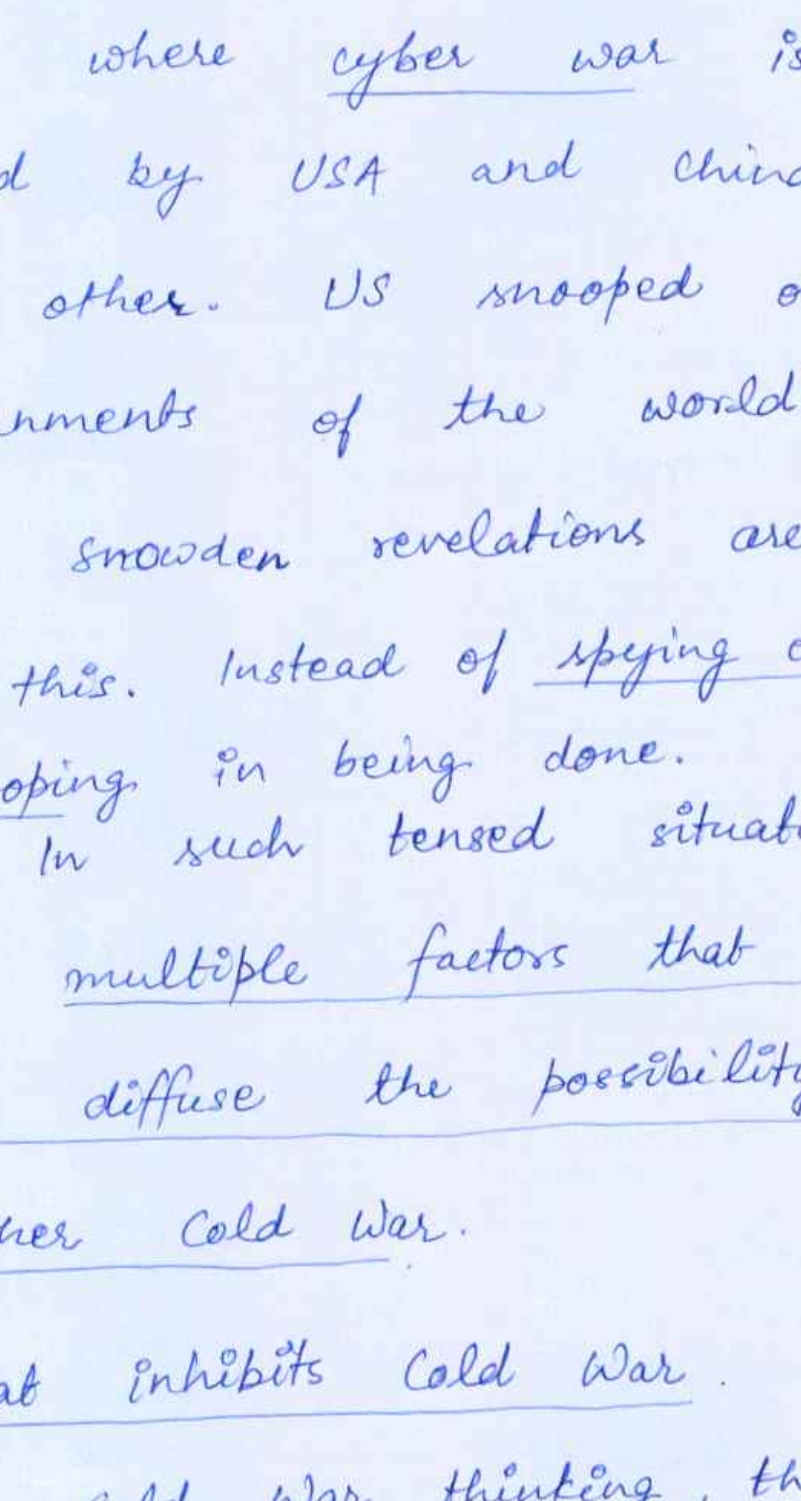 where cyber war is
d by USA and China
other. US snooped o
nments of the world
snowden revelations are
this. Instead of spying o
oping in being done.
In such tensed situati
multiple factors that
diffuse the possibility
her Cold War.
at inhibits Cold War.
cold war thinking, th